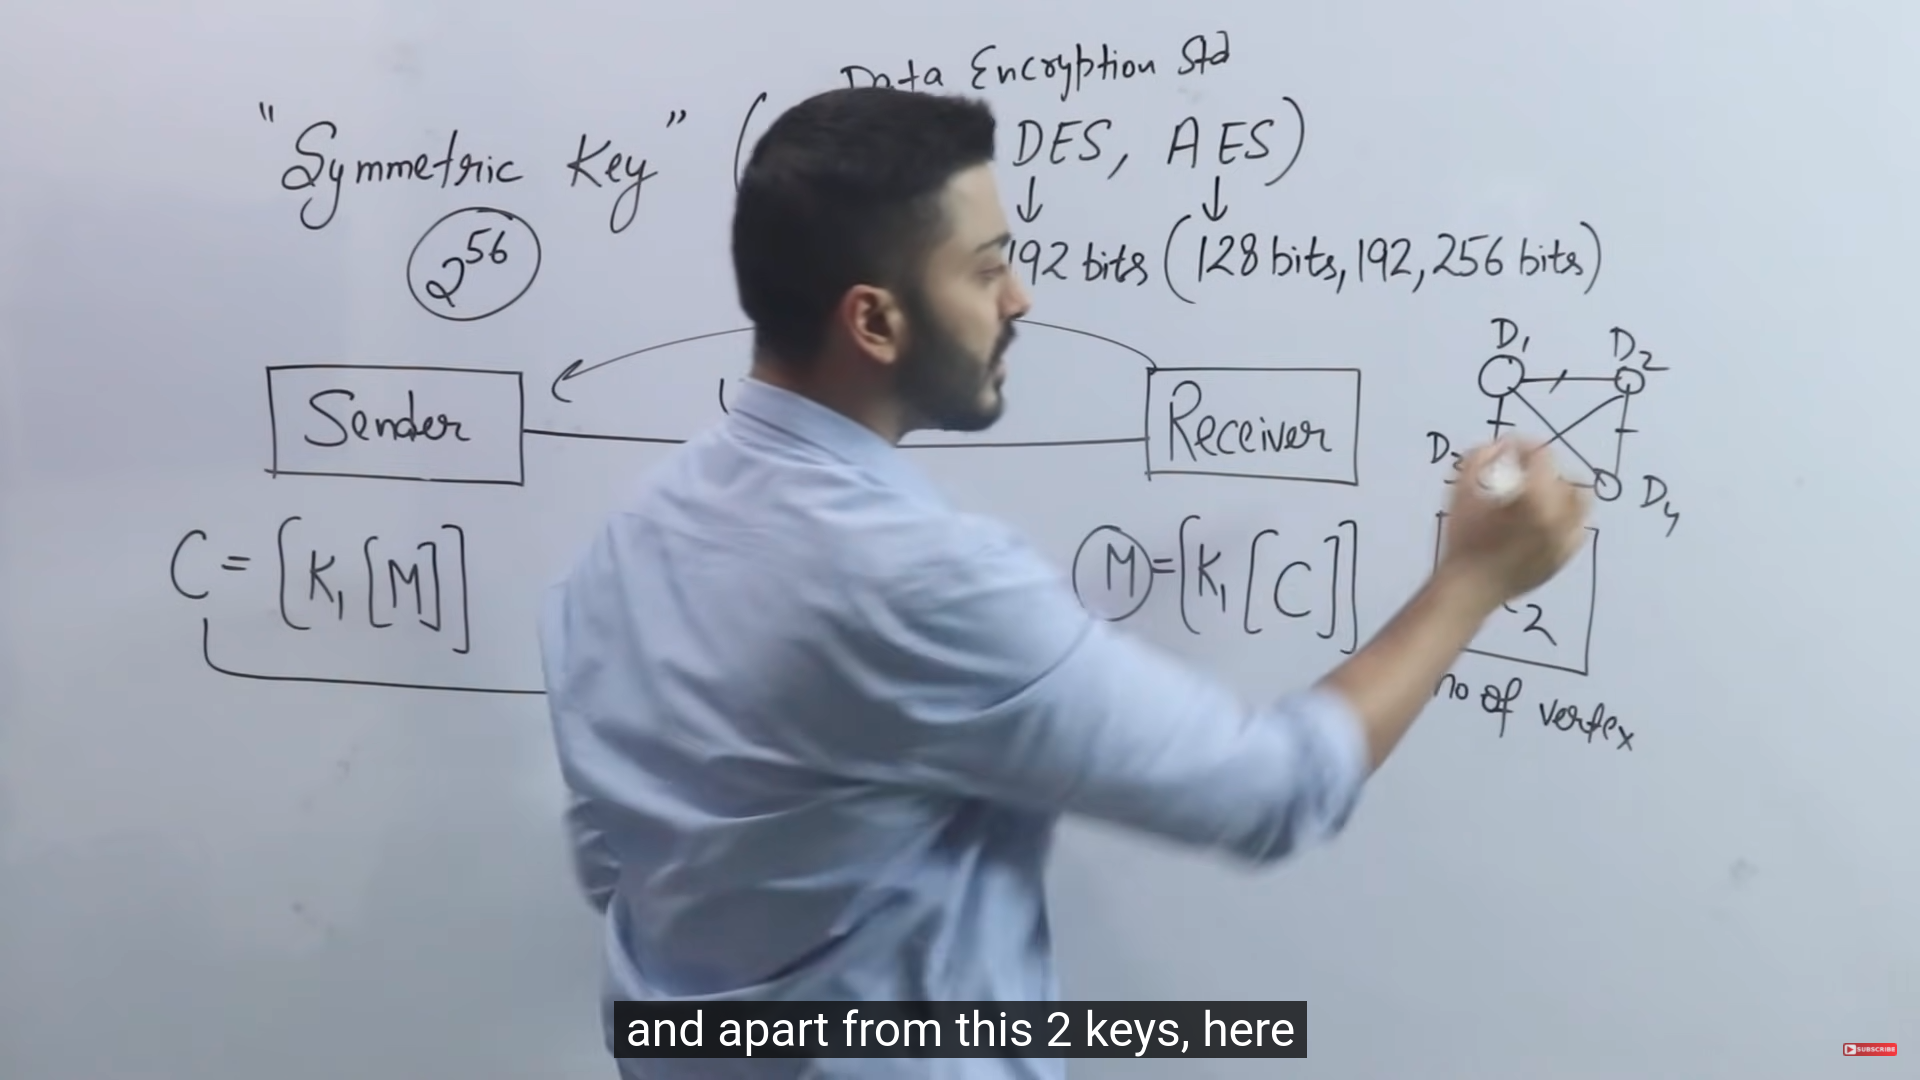 Data Encryption Std
"Symmetric Key" ( DES, AES)
2^56
192 bits (128 bits, 192, 256 bits)
D1 D2
Sender
Receiver
D4
C = [K1 [M]]
M = [K1 [C]]
2
no of vertex
and apart from this 2 keys, here
SUBSCRIBE